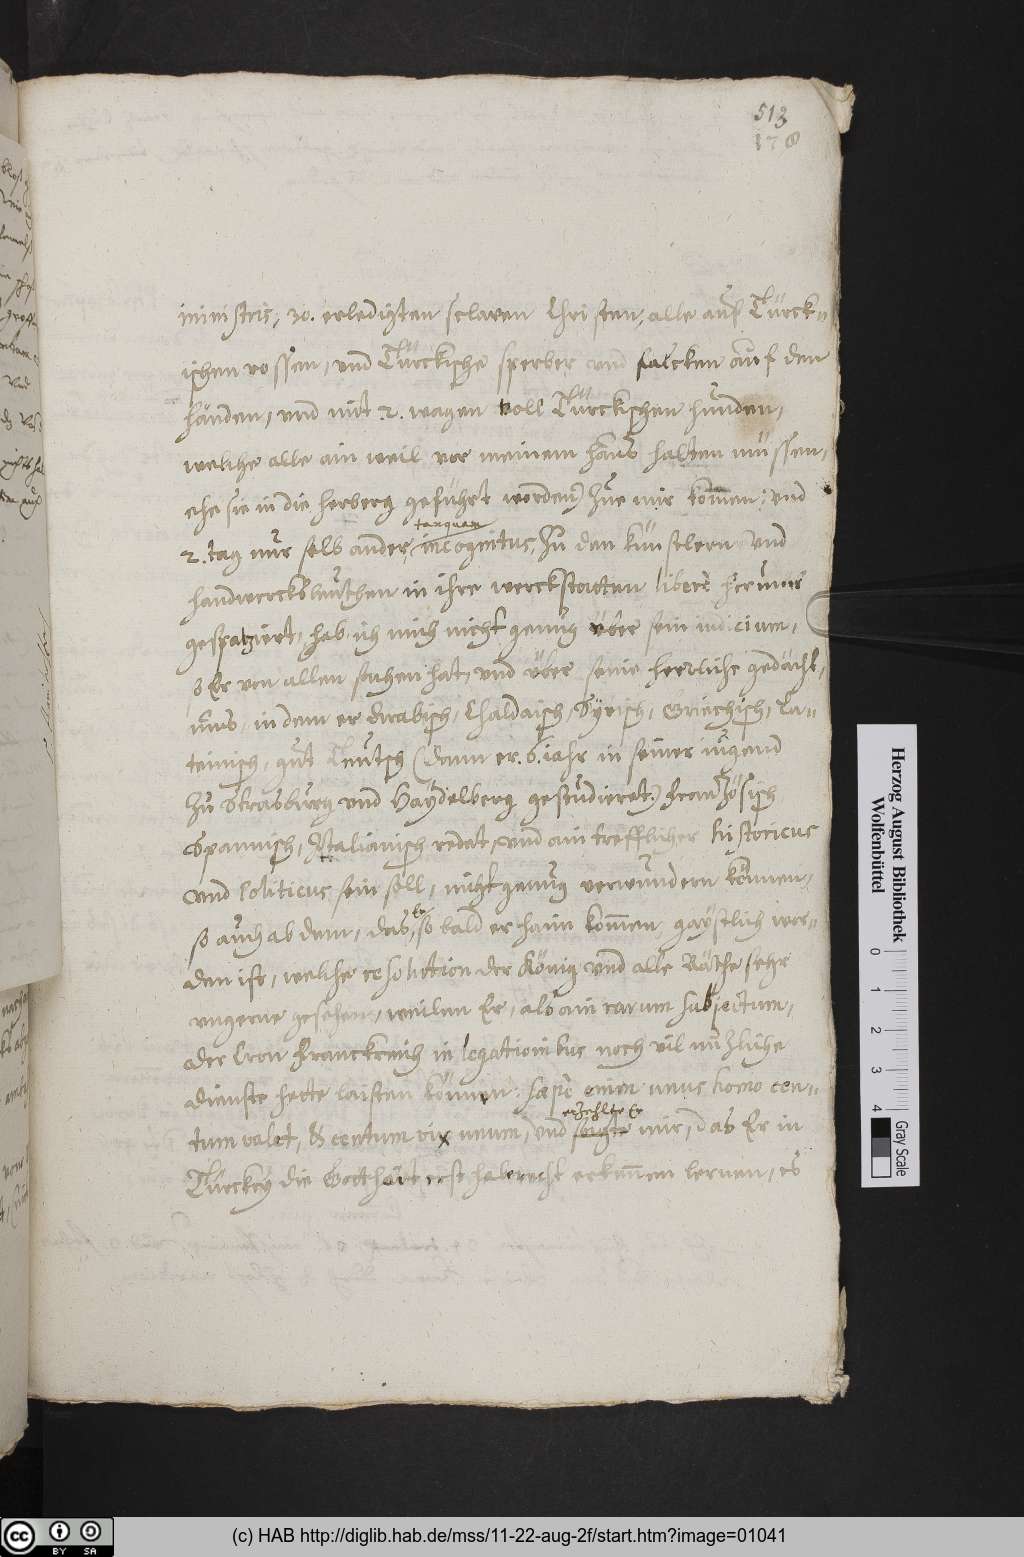 513
178
ministris, 30. erledigten sclaven Christen, alle auf Türck-
ischen rossen, und Türckische sperber und falcken auf den
händen, und mit 2. wagen voll Türckischen hunden,
welche alle ain weil vor meinem haus halten müssen,
ehe sie in die herberg geführt worden) zue mir komen: und
tanquam
2. tag nur selb ander, incognitus, zu den künstlern und
handwercksleuthen in ihre werckstatten libere herumb
gespatziert, hab ich mich nicht genug über sein iudicium,
so Er von allen sachen hat, und über seine herrliche gedächt-
nus, in dem er Arabisch, Chaldaisch, Syrisch, Griechisch, La-
teinisch, gut Teutsch (dann er. 6. iahr in seiner iugend
zu Strasburg und Haydelberg gestudieret) Französisch
Spannisch, Italianisch redet, und ain trefflicher historicus
und Politicus sein soll, nicht genug verwundern können,
so auch ab dem, das, Er so bald er haim komen, gaystlich wor-
den ist, welche resolution der König und alle Räthe sehr
ungerne gesehen, weilen Er, als ain rarum subiectum,
der Cron Franckreich in legationibus noch vil nuzliche
dienste hette laisten können: sæpe enim unus homo cen-
erzehlte Er
tum valet, & centum vix unum, und sagte mir, das Er in
Türckey die Gotthait erst habe recht erkennen lernen, es
Herzog August Bibliothek
Wolfenbüttel
0 1 2 3 4
Gray Scale
cc BY SA
(c) HAB http://diglib.hab.de/mss/11-22-aug-2f/start.htm?image=01041